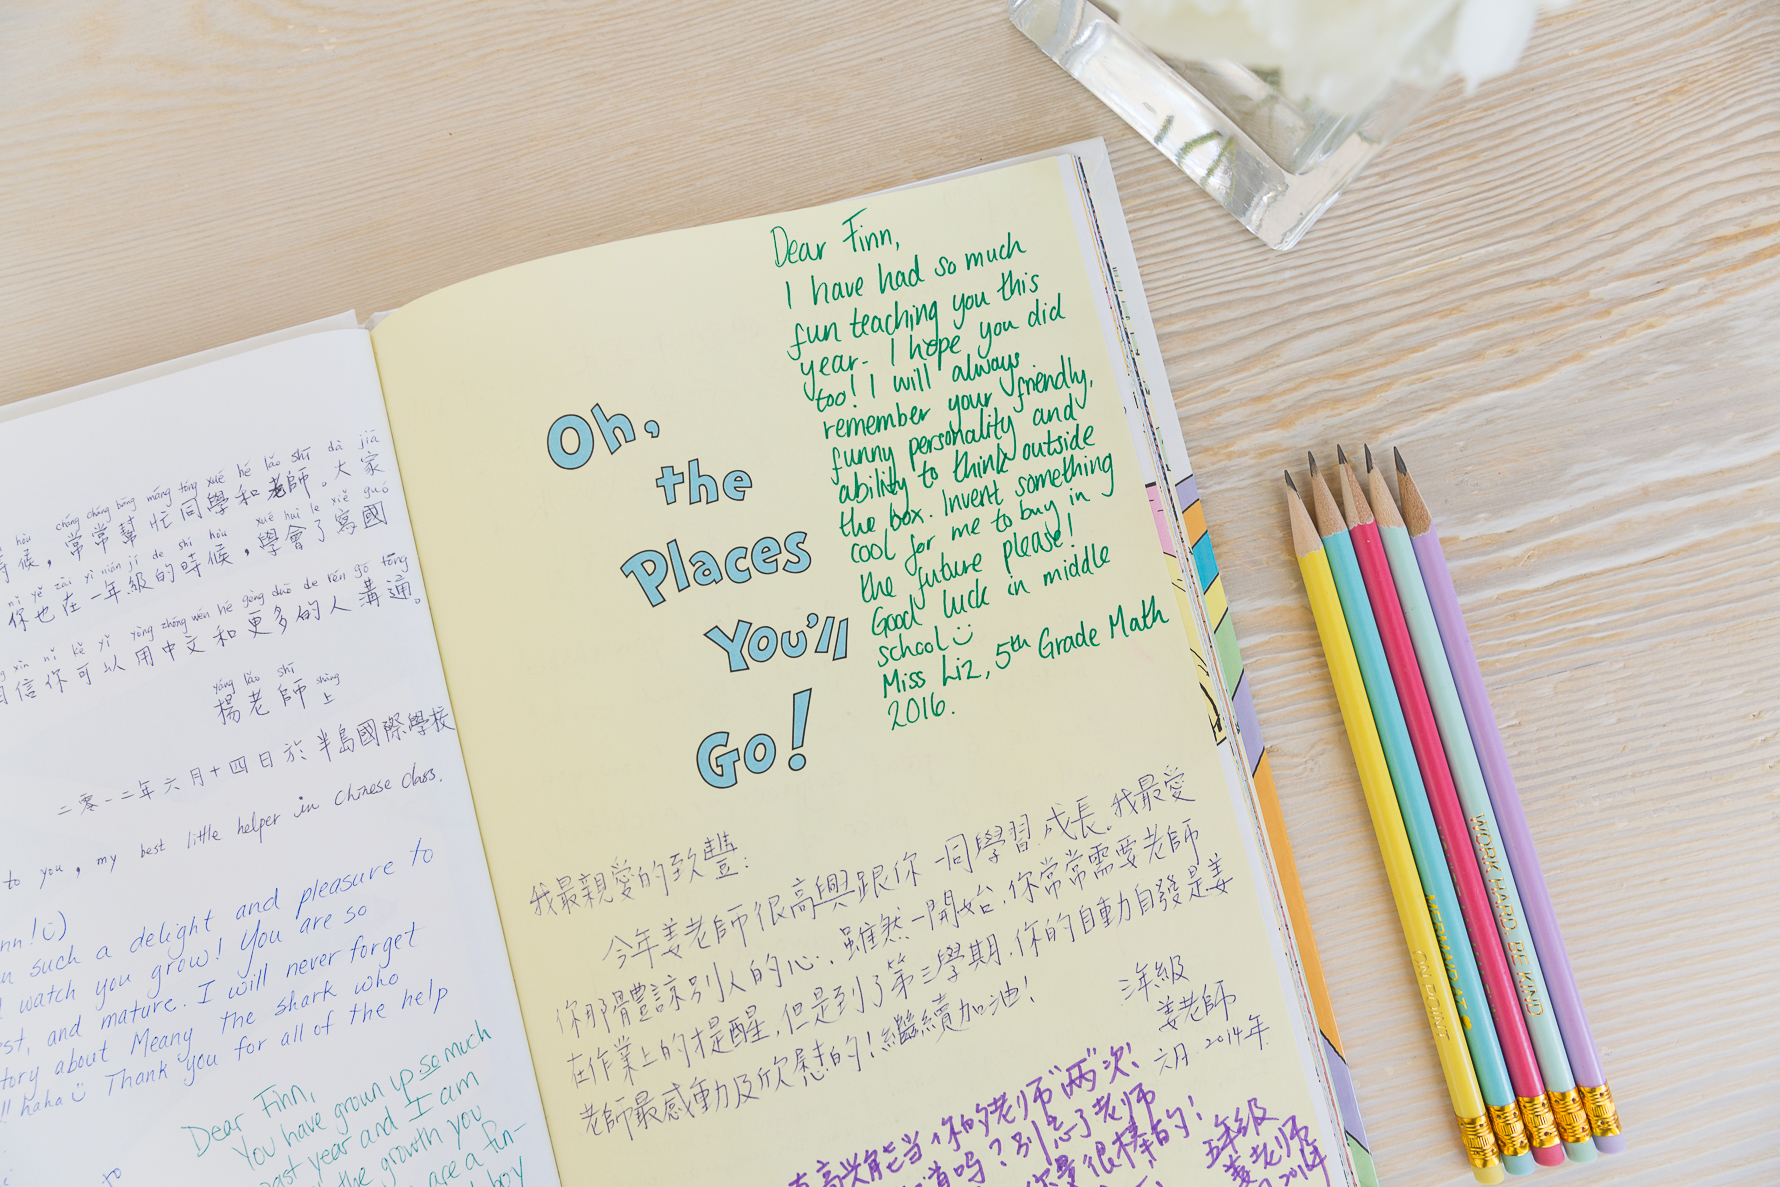 hòu cháng cháng bāng máng tóng xué hé lǎo shī dà jiā
時候，常常幫忙同學和老師。大家
nǐ yě zài yì nián jí de shí hòu xué huì le xiě guó
你也在一年級的時候，學會了寫國
xìn nǐ kě yǐ yòng zhōng wén hé gèng duō de rén gōu tōng
相信你可以用中文和更多的人溝通。
yáng lǎo shī shàng
楊老師上
二零一二年六月十四日於半島國際學校
to you, my best little helper in Chinese class.
nn!☺)
n such a delight and pleasure to
watch you grow! You are so
st, and mature. I will never forget
tory about Meany the shark who
!! haha☺ Thank you for all of the help
Dear Finn,
You have grown up so much
ast year and I am
the growth you
are a fun-
boy
Oh,
the
Places
You'll
Go!
Dear Finn,
I have had so much
fun teaching you this
year. I hope you did
too! I will always
remember your friendly,
funny personality and
ability to think outside
the box. Invent something
cool for me to buy in
the future please!
Good luck in middle
school☺
Miss Liz, 5th Grade Math
2016.
我最親愛的致豐：
今年姜老師很高興跟你一同學習.成長.我最愛
你那體諒別人的心.雖然一開始.你常常需要老師
在作業上的提醒,但是到了第三學期.你的自動自發是姜
老師最感動及欣慰的!繼續加油!
三年級
姜老師
六月.2014年
高兴能当你的老师"两"次!
道吗?别忘了老师
你是很棒的!
五年級
姜老师
2016年
ON POINT
MERMAID AT
WORK HARD. BE KIND